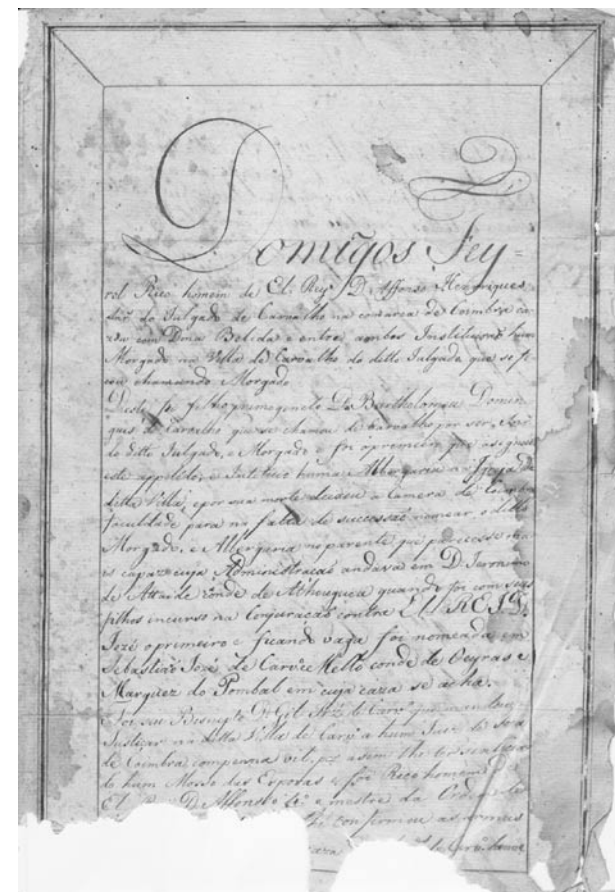 Domĩgos Fey=
rol Rico homem de El Rey D. Affonso Henriques
do Julgado de Carvalho na comarca de Coimbra ca
zou com Dona Belida e entre ambos Instituiraõ hum
Morgado na Villa de Carvalho do ditto Julgado que se fi
cou chamando Morgado
Deste fr. filho primogenito D. Bartholomeu Domin
gues de Carvalho que se chamou de Carvalho por ser
do ditto Julgado, e Morgado e foi o primeiro que
este appelido, e Instituio huma Albergaria na Igreja da
ditta Villa, e por sua morte deixou a Camera de Coimbra
faculdade para na falta de successaõ nomear o ditto
Morgado, e Albergaria no parente, que parecesse ma
is capaz cuja Administraçaõ andava em D. Jeronimo
de Attaide Conde de Athouguea quando foi com seus
filhos incurso na Conjuraçaõ contra EL REI D.
Jozé o primeiro e ficando vaga foi nomeada em
Sebastiaõ Jozé de Carv.º e Mello conde de Oeyras e
Marquez do Pombal em cuja caza se acha.
Foi seu Bisnepto D. Gil de Carv.º que mandou
Justiçar na ditta Villa de Carv.º a hum Juiz de fora
de Coimbra
hum Mosso das Esporas e foi Rico homem de
El Rey D. Affonso e mestre da Ordem de
confirmou as armas
caza de Carv.º